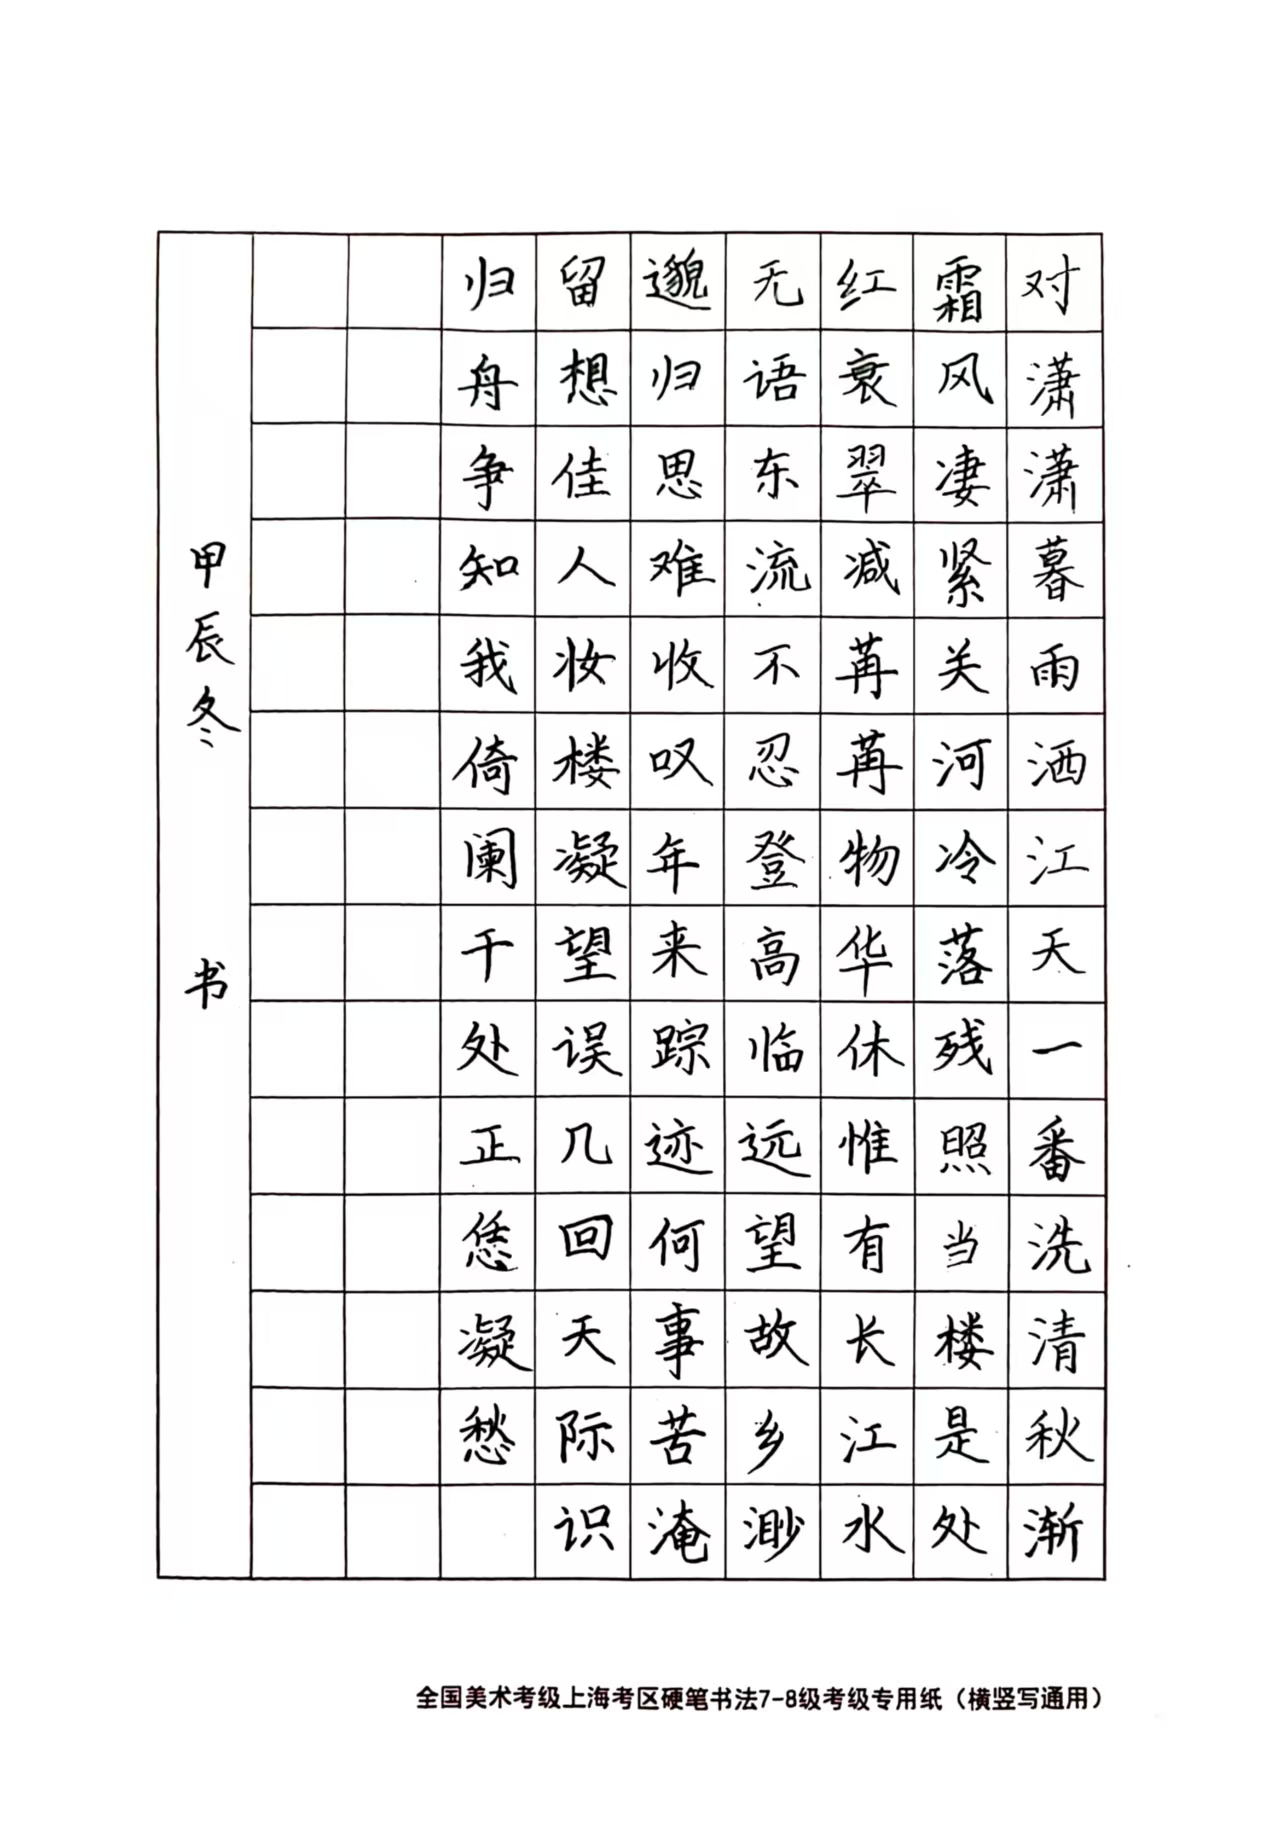 对潇潇暮雨洒江天一番洗清秋渐
霜风凄紧关河冷落残照当楼是处
红衰翠减苒苒物华休惟有长江水
无语东流不忍登高临远望故乡渺
邈归思难收叹年来踪迹何事苦淹
留想佳人妆楼凝望误几回天际识
归舟争知我倚阑干处正恁凝愁
甲辰冬 书
全国美术考级上海考区硬笔书法7-8级考级专用纸（横竖写通用）